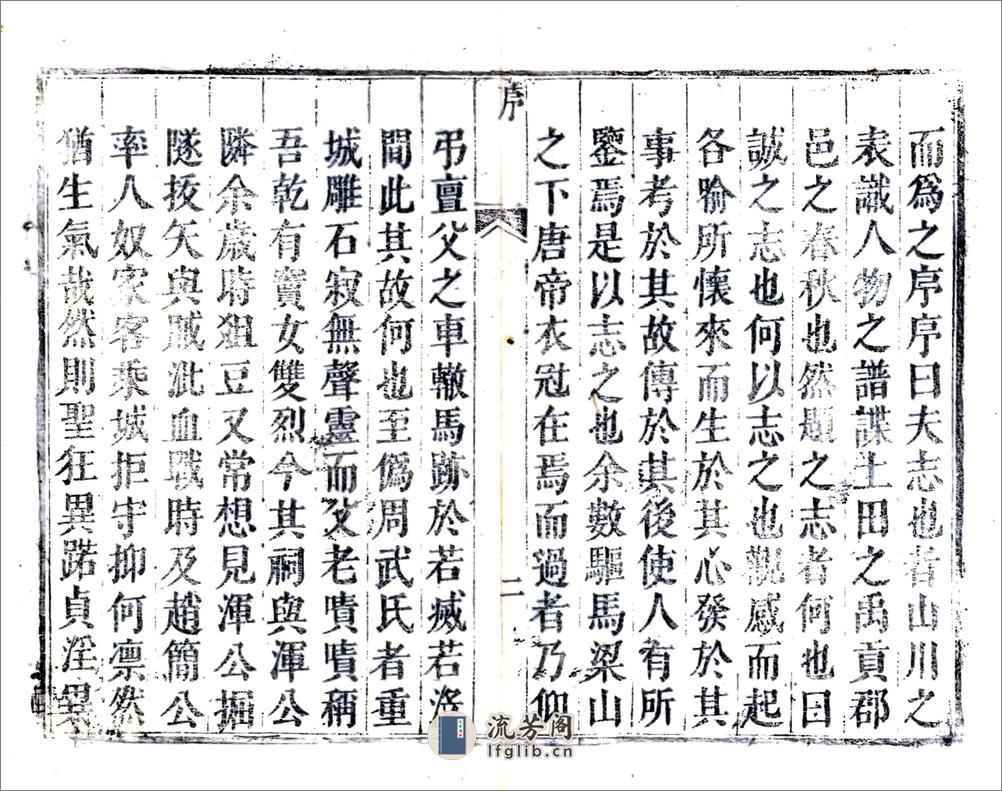 而爲之序序曰夫志也者山川之
表識人物之譜諜土田之禹貢郡
邑之春秋也然題之志者何也曰
誠之志也何以志之也觀感而起
各喻所懷來而生於其心發於其
事考於其故傳於其後使人有所
鑒焉是以志之也余數驅馬梁山
之下唐帝衣冠在焉而過者乃仰
序
二
弔亶父之車轍馬跡於若滅若沒
間此其故何也至僞周武氏者重
城雕石寂無聲靈而父老嘖嘖稱
吾乾有竇女雙烈今其祠與渾公
隣余歲時俎豆又常想見渾公掘
隧拔矢與賊沘血戰時及趙簡公
率人奴家客乘城拒守抑何凛然
猶生氣哉然則聖狂異踣貞淫異
流芳阁
lfglib.cn